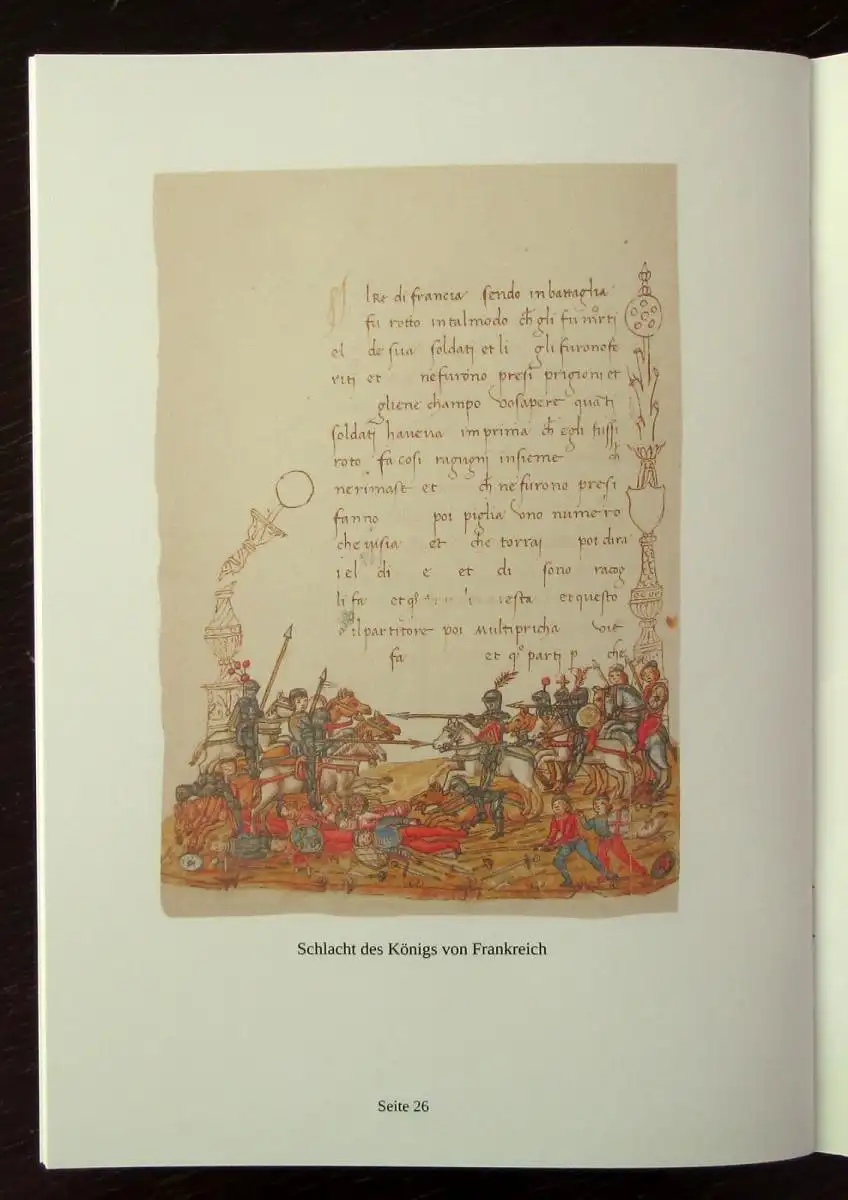 l Re di francia sendo in battaglia
fu rotto intalmodo ch gli fu mrti
el de sua soldati et li gli furono fe
riti et ne furono presi prigioni et
gliene champo vo sapere quati
soldati haveva imprima ch egli fussi
roto fa cosi ragugni insieme ch
nerimase et ch ne furono presi
fanno poi piglia vno numero
che visia et che torrai poi dira
i el di e et di sono racog
li fa et resta et questo
ilpartitore poi multipricha vie
fa et parti p che
Schlacht des Königs von Frankreich
Seite 26